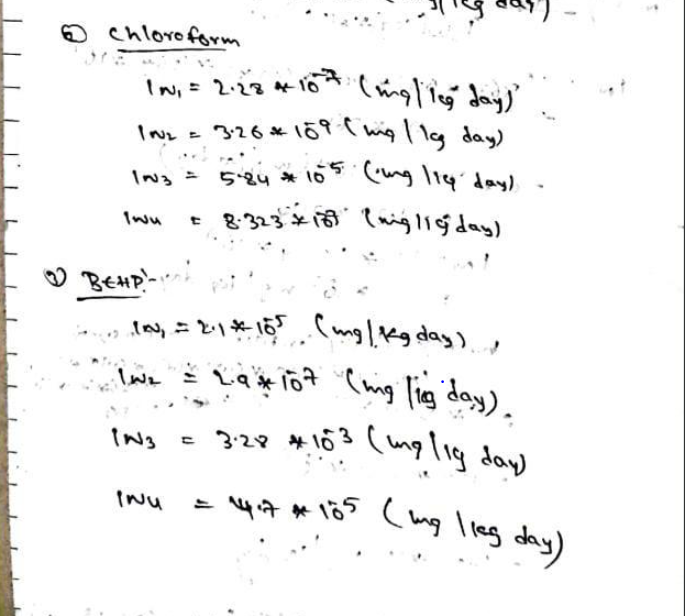 /kg day)
⑥ Chloroform
IN₁ = 2.28 * 10⁻⁷ (mg/kg day)
IN₂ = 3.26 * 10⁻⁹ (mg/kg day)
IN₃ = 5.84 * 10⁻⁵ (mg/kg day)
IN4 = 8.323 * 10⁻⁷ (mg/kg day)
⑦ BEHP:-
IN₁ = 2.1 * 10⁻⁵ (mg/kg day)
IN₂ = 2.9 * 10⁻⁷ (mg/kg day).
IN₃ = 3.28 * 10⁻³ (mg/kg day)
IN4 = 4.7 * 10⁻⁵ (mg/kg day)